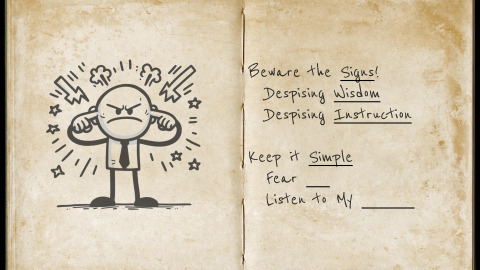 Beware the Signs!
Despising Wisdom
Despising Instruction
Keep it Simple
Fear ___
Listen to My ______